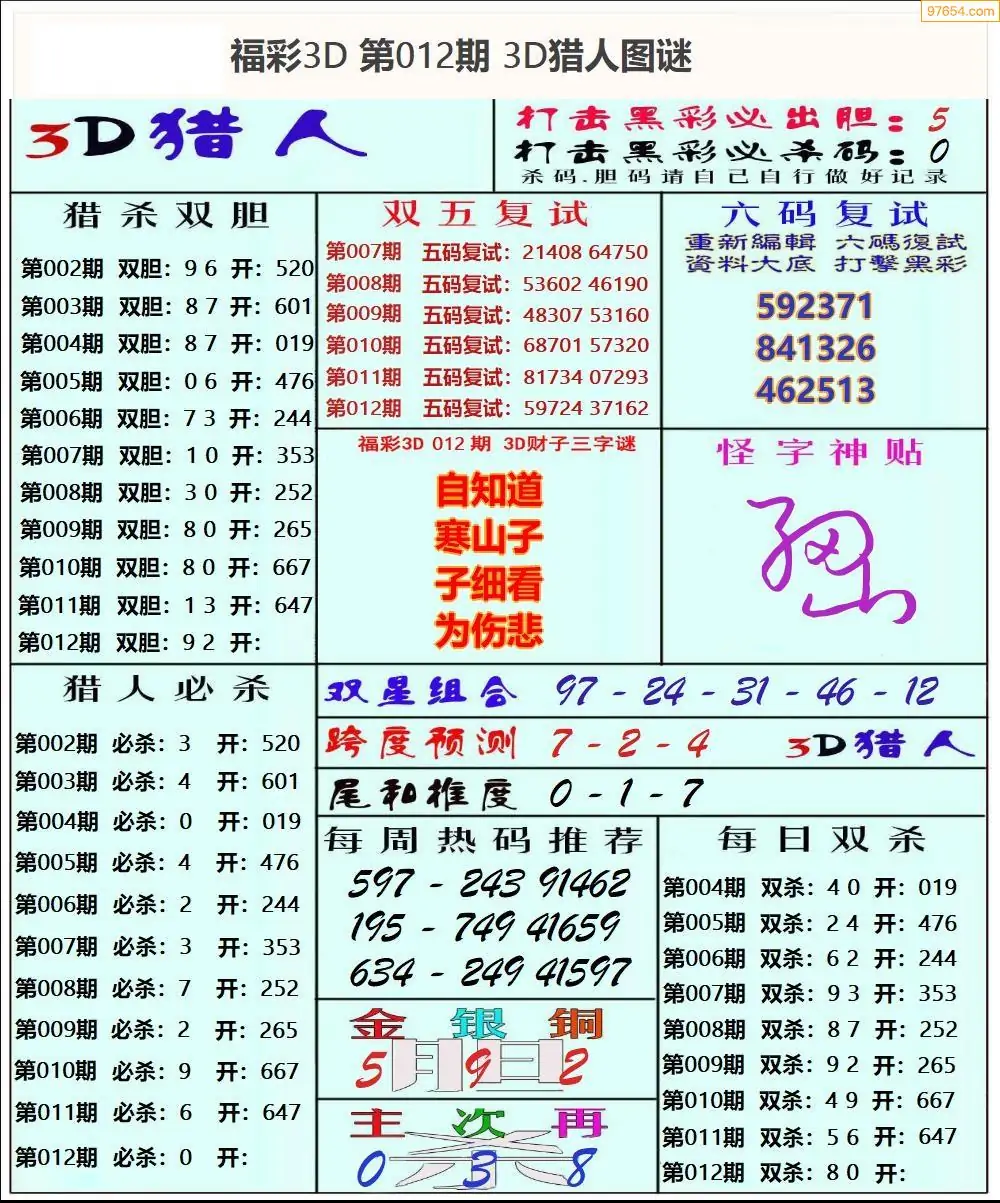 97654.com
福彩3D 第012期 3D猎人图谜
3D猎人
打击黑彩必出胆：5
打击黑彩必杀码：0
杀码.胆码请自己自行做好记录
猎杀双胆
第002期 双胆：9 6 开：520
第003期 双胆：8 7 开：601
第004期 双胆：8 7 开：019
第005期 双胆：0 6 开：476
第006期 双胆：7 3 开：244
第007期 双胆：1 0 开：353
第008期 双胆：3 0 开：252
第009期 双胆：8 0 开：265
第010期 双胆：8 0 开：667
第011期 双胆：1 3 开：647
第012期 双胆：9 2 开：
双五复试
第007期 五码复试：21408 64750
第008期 五码复试：53602 46190
第009期 五码复试：48307 53160
第010期 五码复试：68701 57320
第011期 五码复试：81734 07293
第012期 五码复试：59724 37162
六码复试
重新編輯 六碼復試
資料大底 打擊黑彩
592371
841326
462513
福彩3D 012 期 3D财子三字谜
自知道
寒山子
子细看
为伤悲
怪字神贴
猎人必杀
第002期 必杀：3 开：520
第003期 必杀：4 开：601
第004期 必杀：0 开：019
第005期 必杀：4 开：476
第006期 必杀：2 开：244
第007期 必杀：3 开：353
第008期 必杀：7 开：252
第009期 必杀：2 开：265
第010期 必杀：9 开：667
第011期 必杀：6 开：647
第012期 必杀：0 开：
双星组合 97 - 24 - 31 - 46 - 12
跨度预测 7 - 2 - 4 3D猎人
尾和推度 0 - 1 - 7
每周热码推荐
597 - 243 91462
195 - 749 41659
634 - 249 41597
金 银 铜
5 月 9 日 2
主 次 再
0 杀 3 8
每日双杀
第004期 双杀：4 0 开：019
第005期 双杀：2 4 开：476
第006期 双杀：6 2 开：244
第007期 双杀：9 3 开：353
第008期 双杀：8 7 开：252
第009期 双杀：9 2 开：265
第010期 双杀：4 9 开：667
第011期 双杀：5 6 开：647
第012期 双杀：8 0 开：